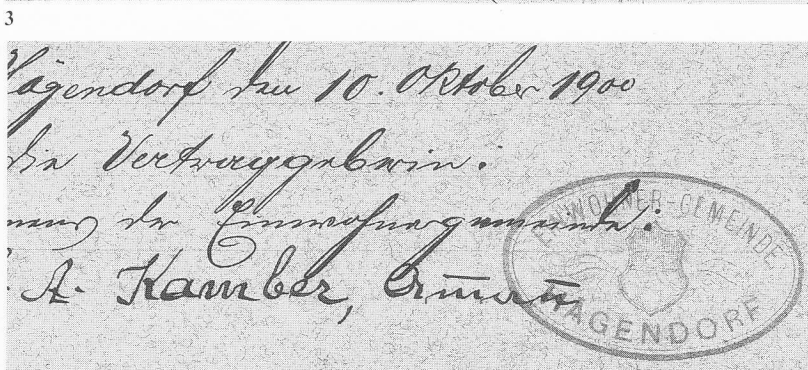 3
Hägendorf den 10. Oktober 1900
die Vertraggeberin:
namens der Einwohnergemeinde:
A. Kamber, Am̄an̄
EINWOHNER-GEMEINDE
HAGENDORF